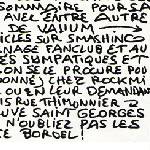 SOMMAIRE POUR SA
AVEC ENTRE AUTRE
DE VALIUM
ICLES SUR SMASHING
NAGE FANCLUB ET AU
ES SYMPATIQUES ET
ON SE LE PROCURE POU
ONNE) CHEZ ROCKMI
OU EN LEUR DEMANDAN
IS RUE THIMONNIER
UVE SAINT GEORGES
N'OUBLIEZ PAS LES
TE BORDEL!